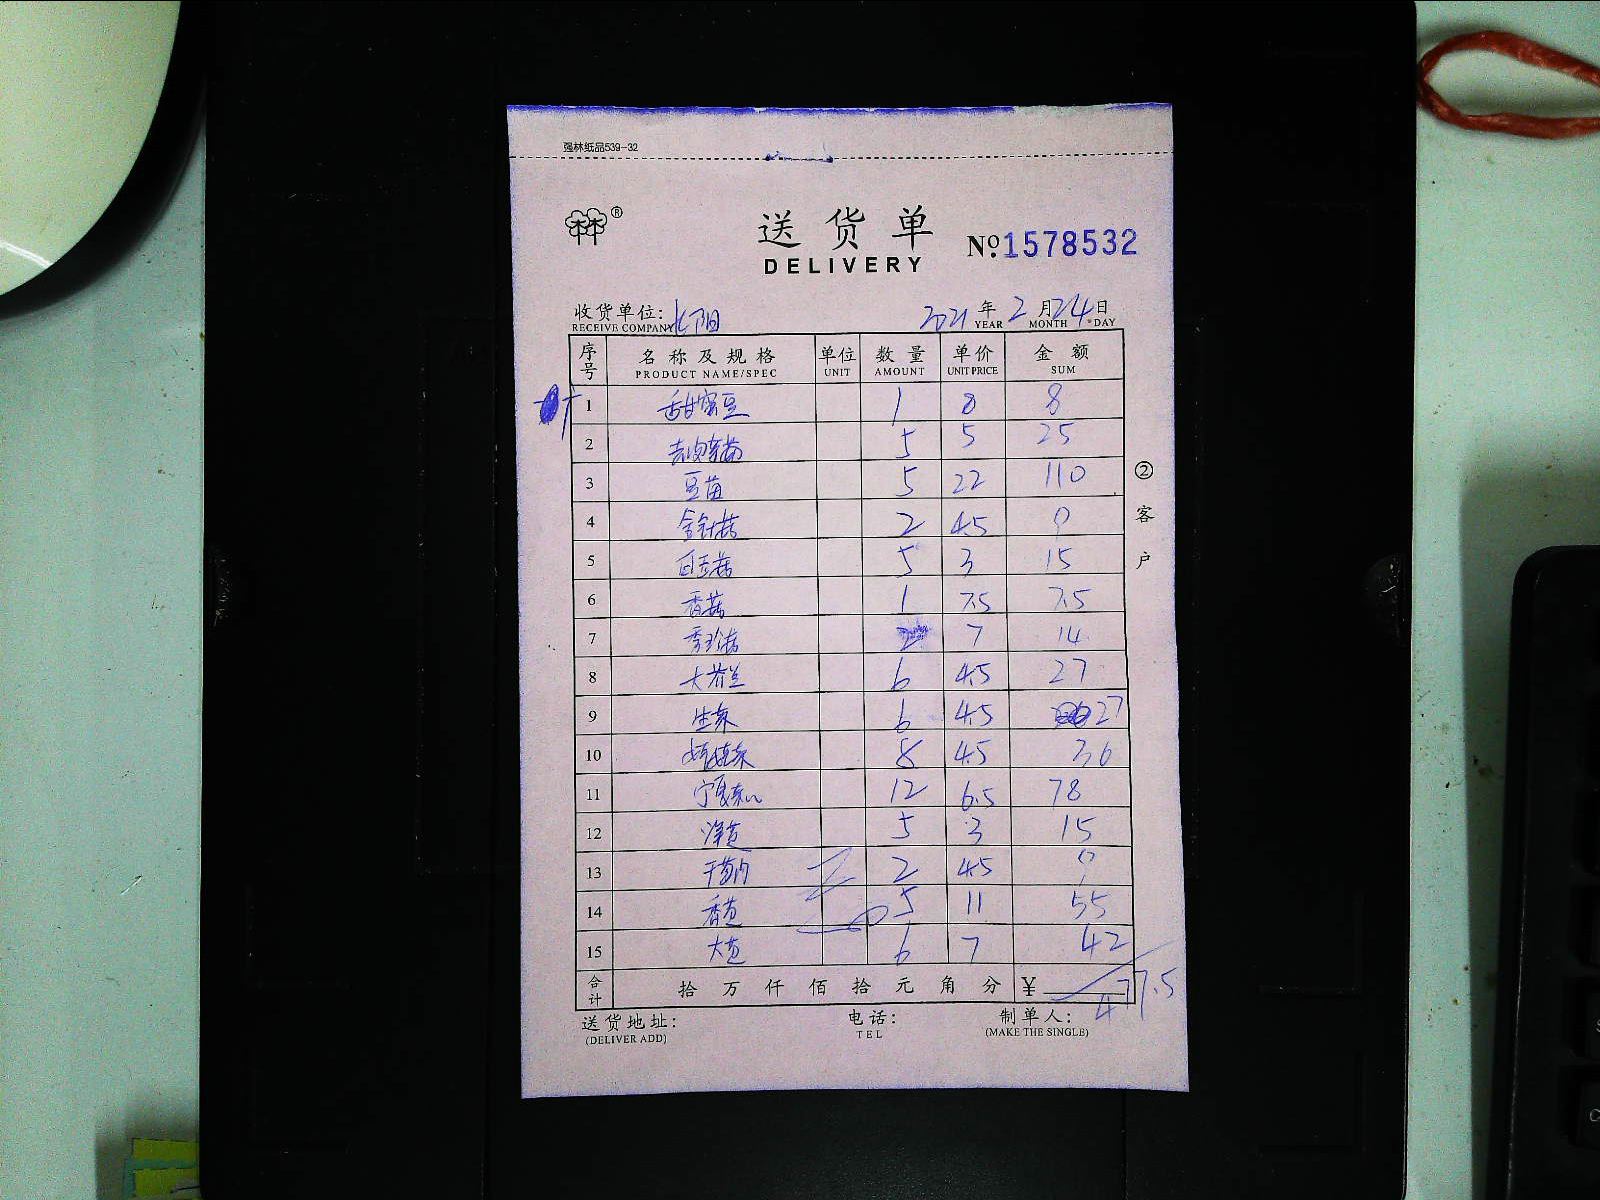 强林纸品539-32
林 ®
送货单 Nº.1578532
DELIVERY
收货单位: 2021 年 2 月 24 日
RECEIVE COMPANY YEAR MONTH DAY
序号 名称及规格 单位 数量 单价 金额
PRODUCT NAME/SPEC UNIT AMOUNT UNIT PRICE SUM
1 甜蜜豆 1 8 8
2 5 5 25
3 豆苗 5 22 110
4 金针菇 2 4.5 9
5 白玉菇 5 3 15
6 香菇 1 7.5 7.5
7 秀珍菇 2 7 14
8 大芥兰 6 4.5 27
9 生菜 6 4.5 27
10 娃娃菜 8 4.5 36
11 宁夏菜心 12 6.5 78
12 5 3 15
13 2 4.5 9
14 香芒 5 11 55
15 大芒 6 7 42
合计 拾 万 仟 佰 拾 元 角 分 ¥ 477.5
送货地址: 电话: 制单人:
(DELIVER ADD) TEL (MAKE THE SINGLE)
② 客户